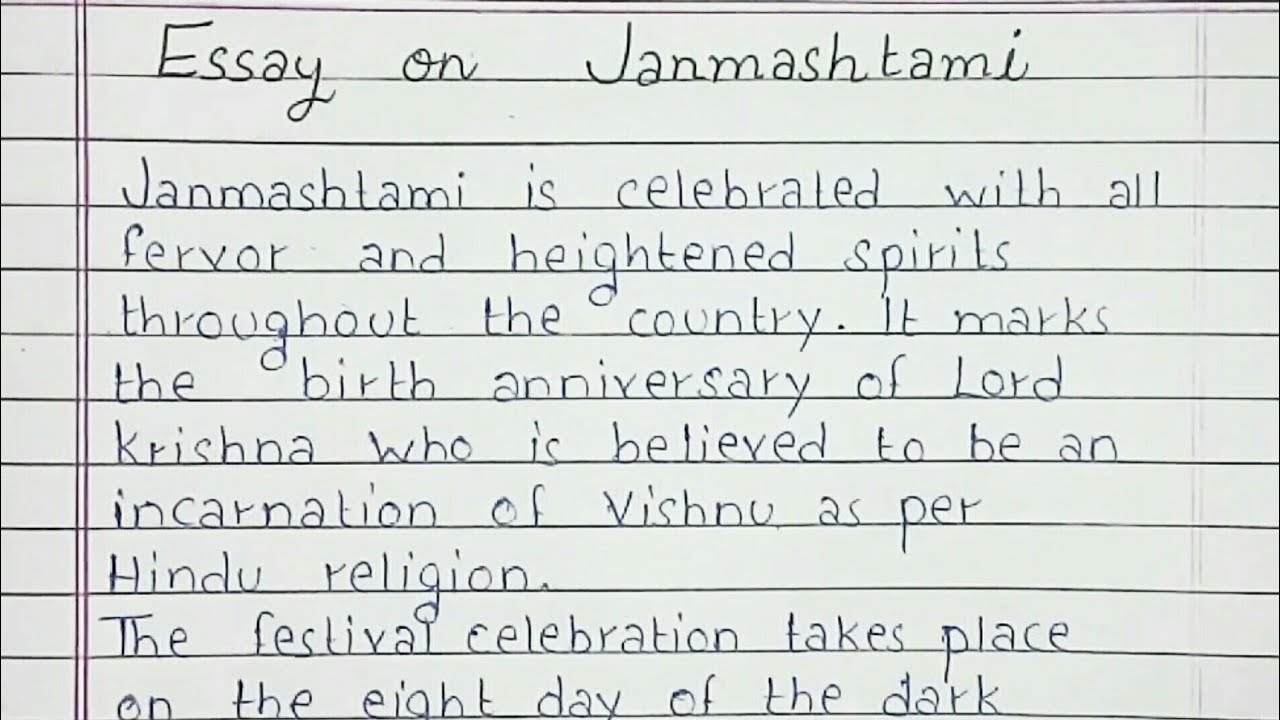 Essay on Janmashtami
Janmashtami is celebrated with all
fervor and heightened spirits
throughout the country. It marks
the birth anniversary of Lord
Krishna who is believed to be an
incarnation of Vishnu as per
Hindu religion.
The festival celebration takes place
on the eight day of the dark